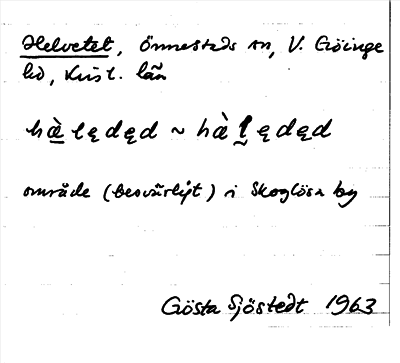 Helvetet, Önnestads sn, V. Göinge
hd, Krist. län
hà̲lędęd ~ hàl̬ędęd
område (besvärligt) i Skoglösa by
Gösta Sjöstedt 1963